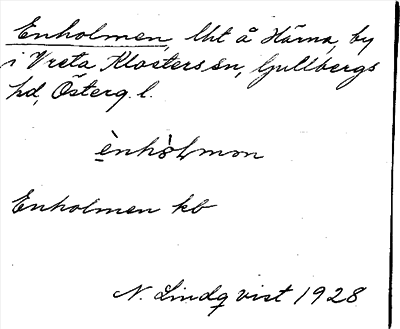 Enholmen, lht å Härna, by
i Vreta Klosters sn, Gullbergs
hd, Österg. l.
ènhòlmon
Enholmen kb
N. Lindqvist 1928